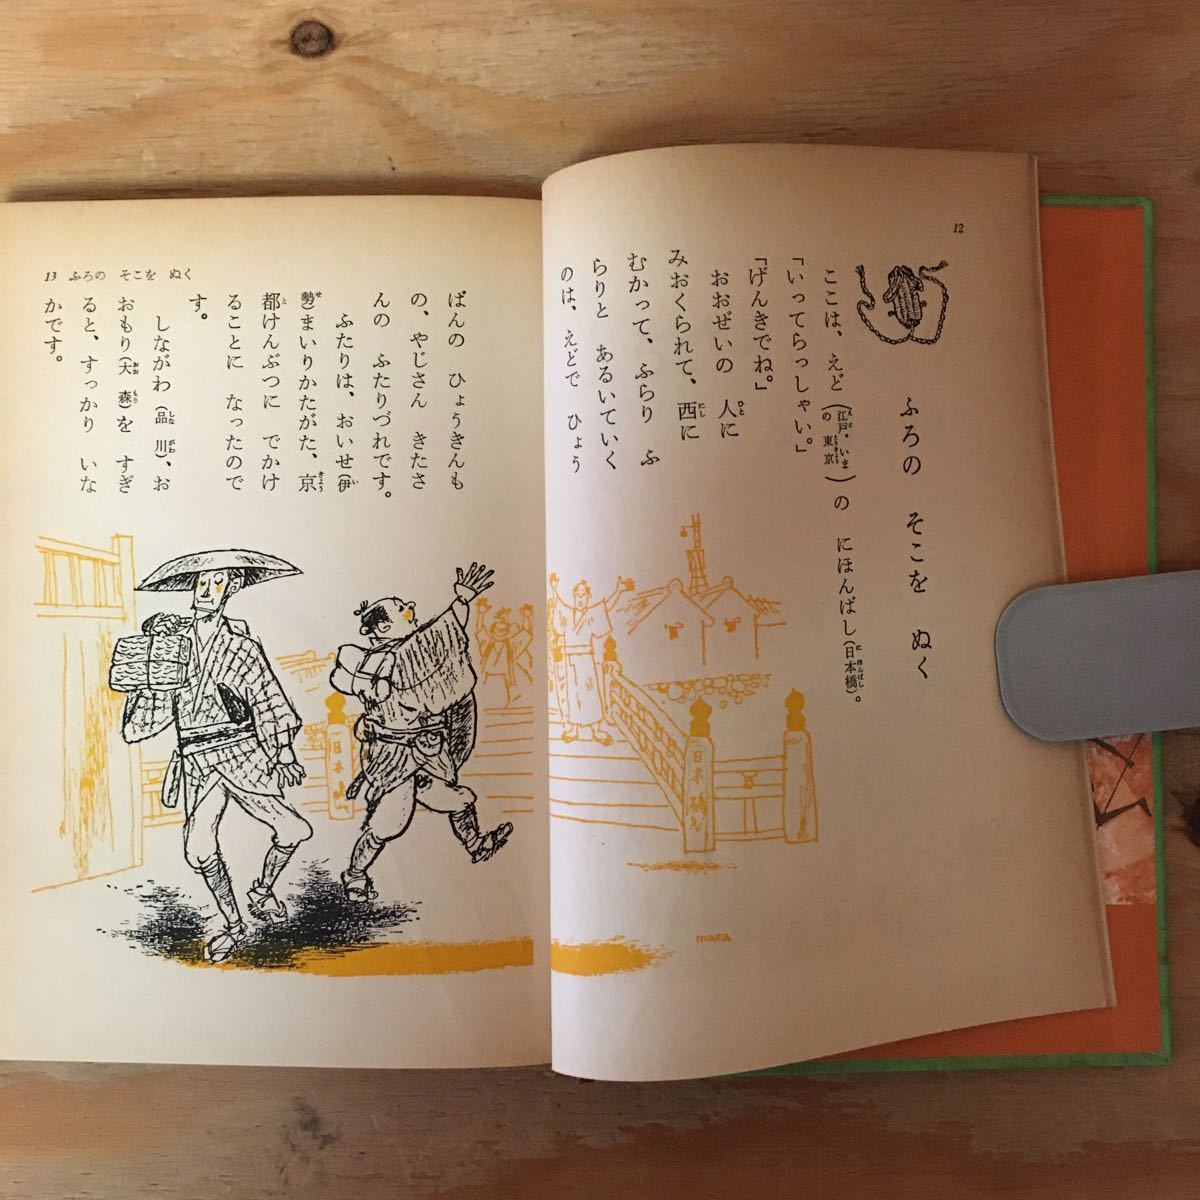 12
ふろの そこを ぬく
ここは、えど(江戸・いまの東京)の にほんばし(日本橋)。
「いってらっしゃい。」
「げんきでね。」
おおぜいの 人に
みおくられて、西に
むかって、ふらり ふ
らりと あるいていく
のは、えどで ひょう
日本橋
mara
13 ふろの そこを ぬく
ばんの ひょうきんも
の、やじさん きたさ
んの ふたりづれです。
ふたりは、おいせ(伊
勢)まいりかたがた、京
都けんぶつに でかけ
ることに なったので
す。
しながわ(品川)、お
おもり(大森)を すぎ
ると、すっかり いな
かです。
日本